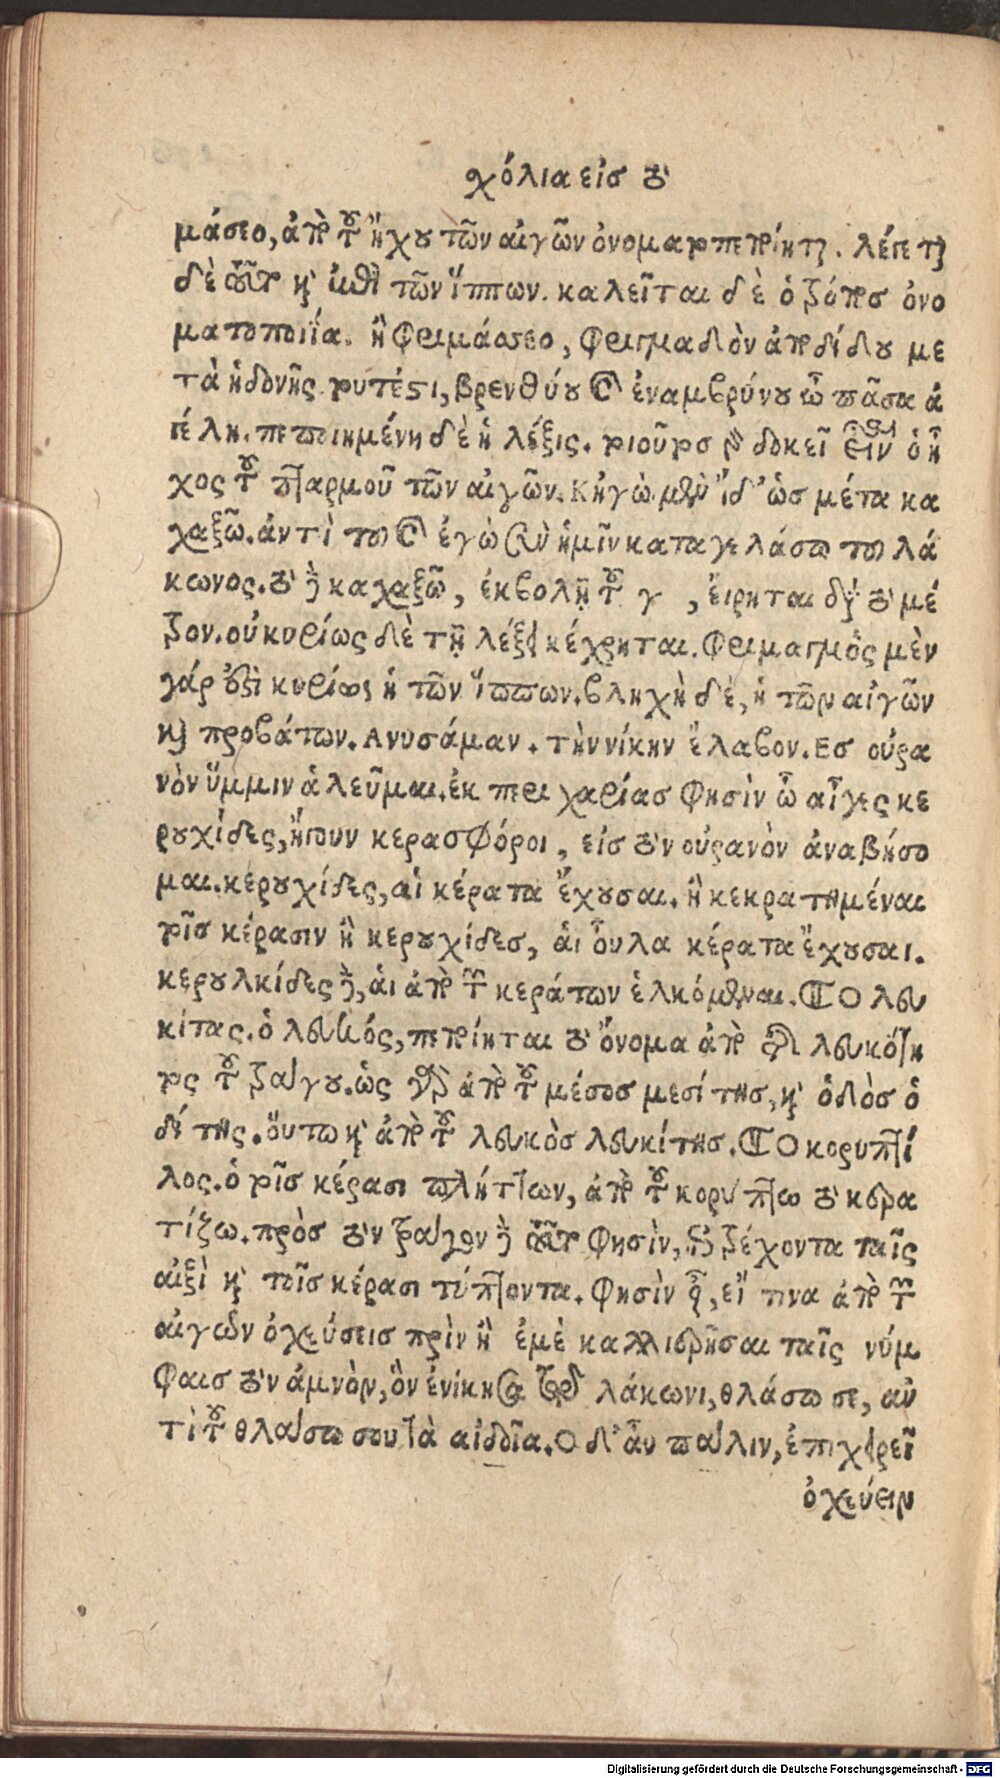 σχόλια εἰς τὸ
μάσεο, ἀπὸ τοῦ ἤχου τῶν αἰγῶν ὀνοματοπεποίηται. λέγεται
δὲ τοῦτο καὶ ἐπὶ τῶν ἵππων. καλεῖται δὲ ὁ τρόπος ὀνο
ματοποιΐα. ἢ φριμάσσεο, φριγμαδὸν ἀπεδίδου με
τὰ ἡδονῆς. τουτέστι, βρενθύου καὶ ἐναμβρύνου ὦ πᾶσα ἀ
γέλη. πεποιημένη δὲ ἡ λέξις. τοιοῦτος γὰρ δοκεῖ εἶναι ὁ ἦ
χος τοῦ πταρμοῦ τῶν αἰγῶν. Κἠγὼ μὲν ἴδ' ὡς μέγα κα
χαξῶ. ἀντὶ τοῦ καὶ ἐγὼ σὺν ἡμῖν καταγελάσω τοῦ λά
κωνος. τὸ δὲ καχαξῶ, ἐκβολῇ τοῦ γ , εἴρηται διὰ τὸ μέ
τρον. οὐ κυρίως δὲ τῇ λέξει κέχρηται. φριμαγμὸς μὲν
γάρ ἐστι κυρίως ἡ τῶν ἵππων. βληχὴ δέ, ἡ τῶν αἰγῶν
καὶ προβάτων. Ανυσάμαν. τὴν νίκην ἔλαβον. Ες οὐρα
νὸν ὔμμιν ἁλεῦμαι. ἐκ περιχαρίας φησὶν ὦ αἶγες κε
ρουχίδες, ἤγουν κερασφόροι, εἰς τὸν οὐρανὸν ἀναβήσο
μαι. κερουχίδες, αἱ κέρατα ἔχουσαι. ἢ κεκρατημέναι
τοῖς κέρασιν ἢ κερουχίδες, αἱ οὖλα κέρατα ἔχουσαι.
κερουλκίδες δὲ, αἱ ἀπὸ τῶν κεράτων ἑλκόμεναι. Ο λευ
κίτας. ὁ λευκός, πεποίηται τὸ ὄνομα ἀπὸ τῆς λευκότη
τος τοῦ τράγου. ὡς γὰρ ἀπὸ τοῦ μέσος μεσίτης, καὶ ὁδὸς ὁ
δίτης. οὕτω καὶ ἀπὸ τοῦ λευκὸς λευκίτης. Ο κορυπτί
λος. ὁ τοῖς κέρασι πλήττων, ἀπὸ τοῦ κορύπτω τὸ κερα
τίζω. πρὸς τὸν τράγον δὲ τοῦτο φησὶν, ἐπιτρέχοντα ταῖς
αἰξὶ καὶ τοῖς κέρασι τύπτοντα. φησὶν οὖν, εἴ τινα ἀπὸ τῶν
αἰγῶν ὀχεύσεις πρὶν ἢ ἐμὲ καλλιερῆσαι ταῖς νύμ
φαις τὸν ἀμνὸν, ὃν ἐνίκησα τῷ λάκωνι, θλάσω σε, ἀν
τὶ τοῦ θλάσω σου τὰ αἰδοῖα. Ο δ' ἂν πάλιν, ἐπιχειρεῖ
ὀχεύειν
Digitalisierung gefördert durch die Deutsche Forschungsgemeinschaft - DFG